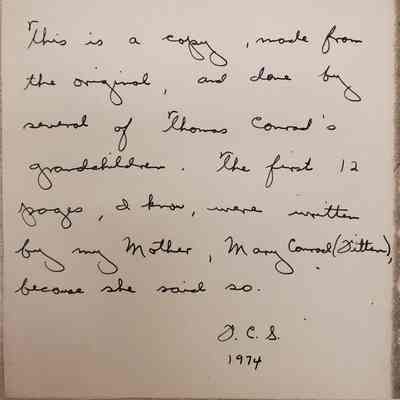 This is a copy, made from
the original, and done by
several of Thomas Conrad's
grandchildren. The first 12
pages, I know, were written
by my Mother, Mary Conrad (Titten),
because she said so.
T. C. S.
1974